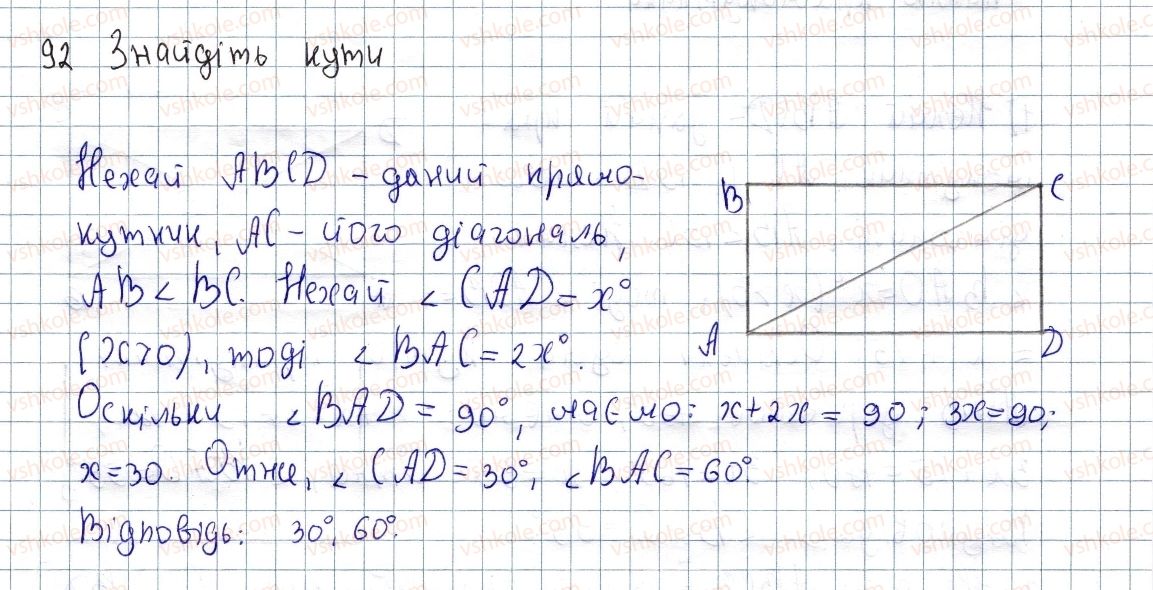 92 Знайдіть кути
Нехай ABCD – даний прямо-
кутник, AC – його діагональ,
AB < BC. Нехай ∠CAD = x°
(x>0), тоді ∠BAC = 2x°.
Оскільки ∠BAD = 90°, маємо: x+2x = 90; 3x=90;
x=30. Отже, ∠CAD = 30°, ∠BAC = 60°.
Відповідь: 30°, 60°.
B
C
A
D
vshkole.com